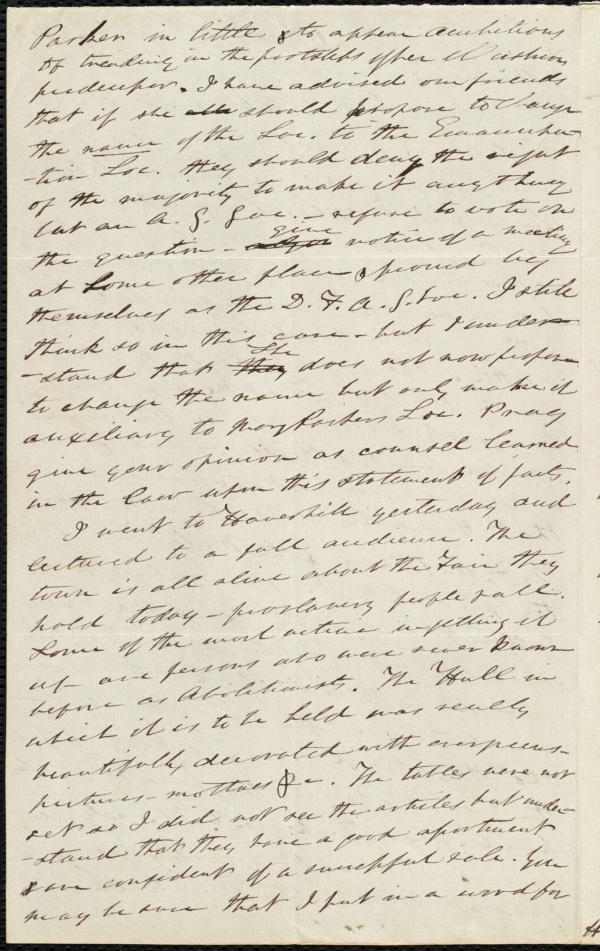 Parker in little & to appear ambitious
of treading in the footsteps of her
predecessor. I have advised our friends
that if she should propose to change
the name of the Soc. to the Emancipa-
-tion Soc. they should deny the right
of the majority to make it anything
but an A. S. Soc. - refuse to vote on
the question - give notice of a meeting
at some other place & proceed by
themselves as the D. F. A. S. Soc. I still
think so in this case - but I under-
-stand that she does not now propose
to change the name but only make it
auxiliary to Mary Parkers Soc. Pray
give your opinion as counsel learned
in the law upon this statement of facts.
I went to Haverhill yesterday and
lectured to a full audience. The
town is all alive about the Fair they
hold today - proslavery people & all.
Some of the most active in getting it
up are persons who were never known
before as Abolitionists. The Hall in
which it is to be held was really
beautifully decorated with evergreens -
pictures - mottoes &c. The tables were not
set so I did not see the articles but under-
-stand that they have a good assortment
& are confident of a successful sale. You
may be sure that I put in a word for